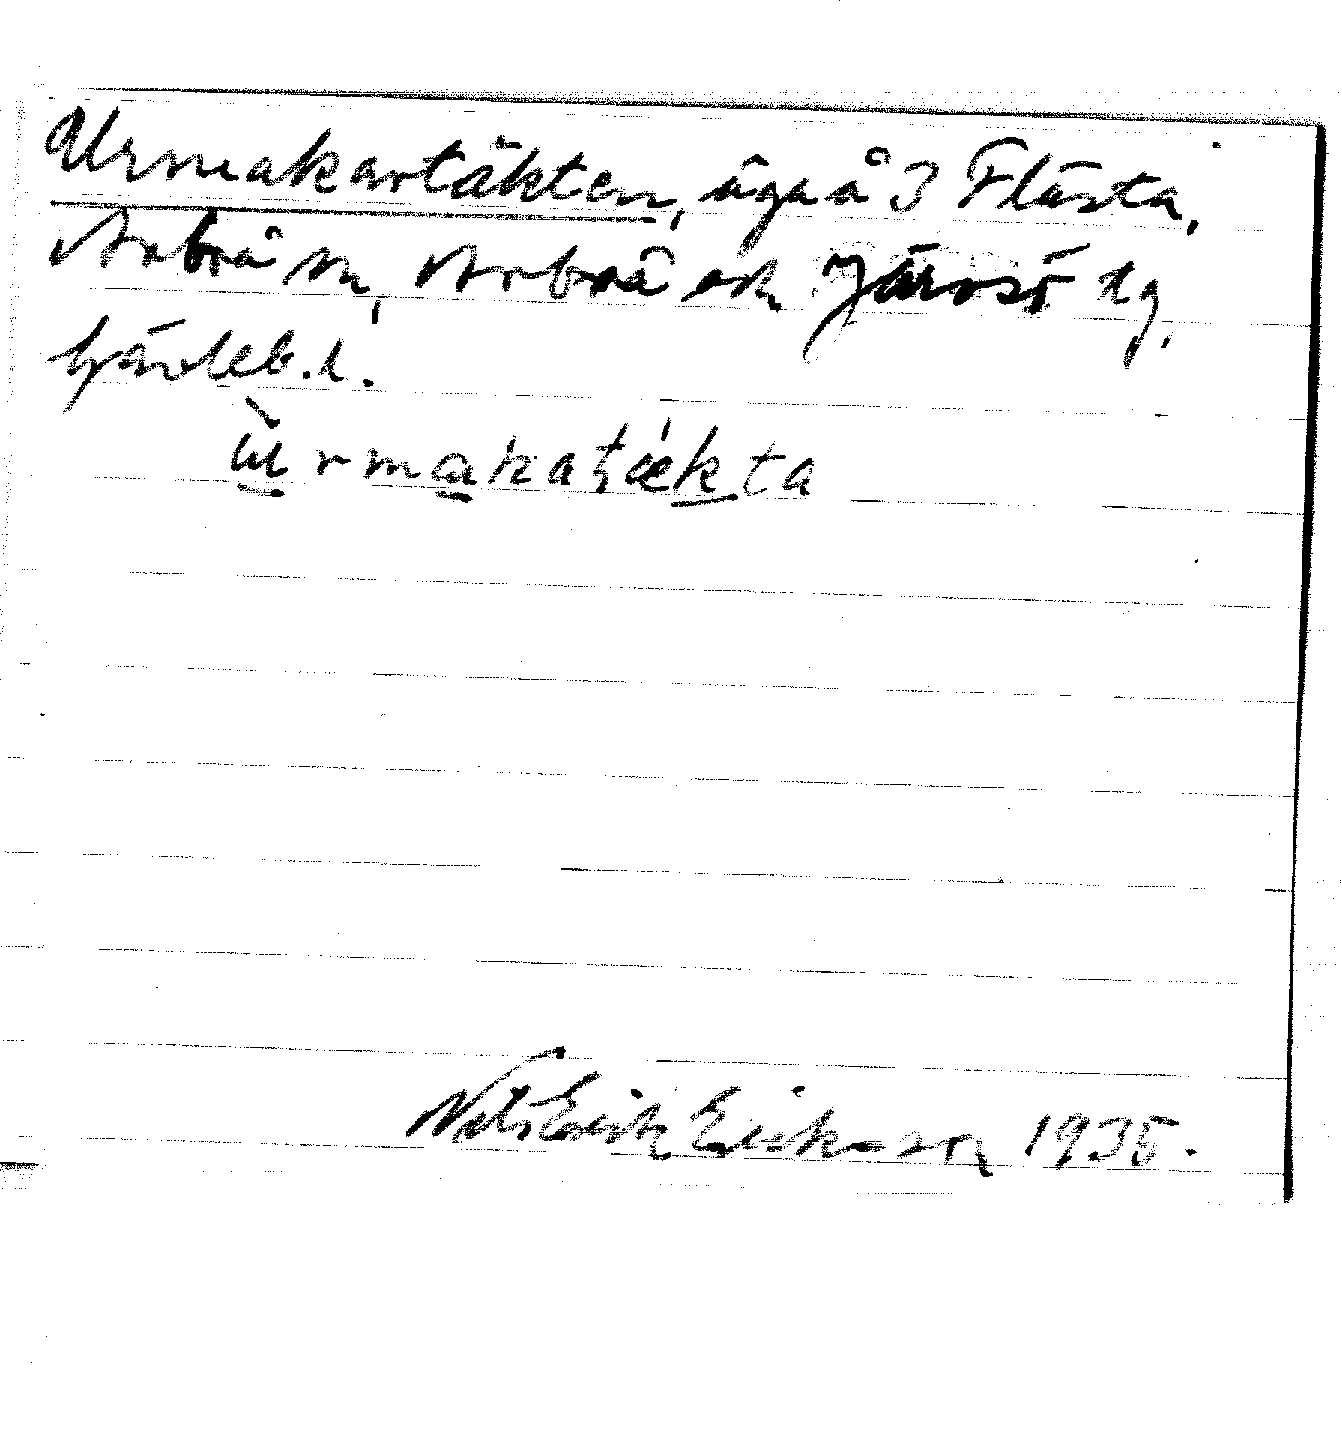 Urmakartäkten, äga å 3 Flästa,
Arbrå sn, Arbrå och Järvsö tg,
Gävleb. l.
ùrmakatǽkta
Nils Erik Eriksson 1935.